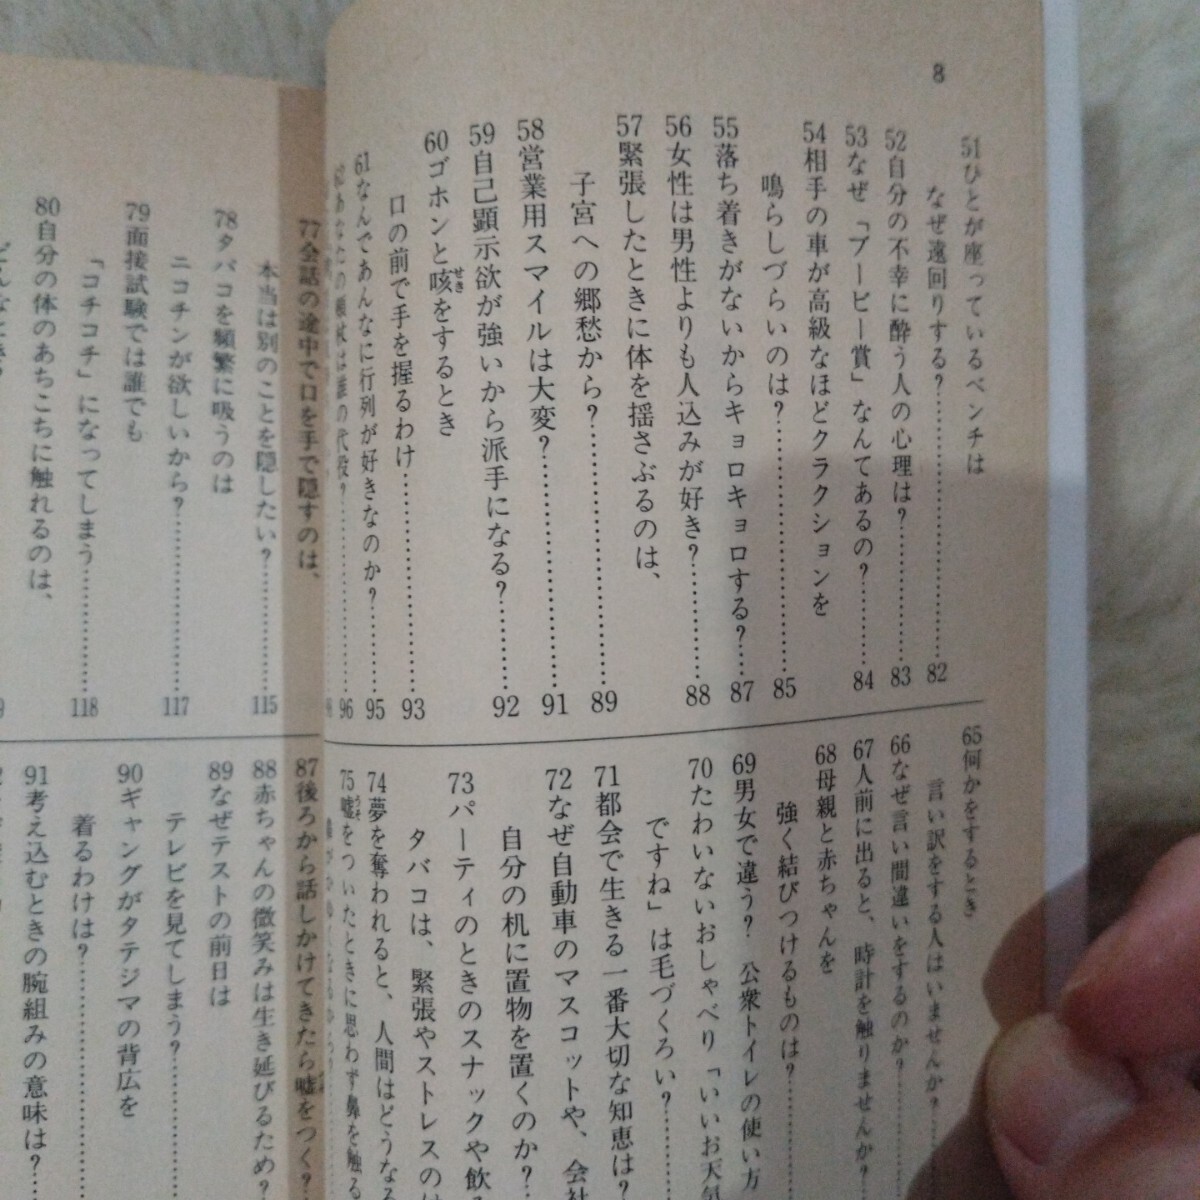 8
51ひとが座っているベンチは
なぜ遠回りする?…………………82
52自分の不幸に酔う人の心理は?…………83
53なぜ「ブービー賞」なんてあるの?………84
54相手の車が高級なほどクラクションを
鳴らしづらいのは?…………………85
55落ち着きがないからキョロキョロする?……87
56女性は男性よりも人込みが好き?…………88
57緊張したときに体を揺さぶるのは、
子宮への郷愁から?…………………89
58営業用スマイルは大変?…………………91
59自己顕示欲が強いから派手になる?………92
60ゴホンと咳をするとき
せき
口の前で手を握るわけ…………………93
61なんであんなに行列が好きなのか?………95
代役?…………………96
65何かをするとき
言い訳をする人はいませんか?……
66なぜ言い間違いをするのか?…………
67人前に出ると、時計を触りませんか?
68母親と赤ちゃんを
強く結びつけるものは?…………
69男女で違う? 公衆トイレの使い方
70たわいないおしゃべり「いいお天気
ですね」は毛づくろい?…………
71都会で生きる一番大切な知恵は?
72なぜ自動車のマスコットや、会社
自分の机に置物を置くのか?……
73パーティのときのスナックや飲
タバコは、緊張やストレスの
74夢を奪われると、人間はどうな
75嘘をついたときに思わず鼻を触る
うそ
77会話の途中で口を手で隠すのは、
本当は別のことを隠したい?…………115
78タバコを頻繁に吸うのは
ニコチンが欲しいから?…………………117
79面接試験では誰でも
「コチコチ」になってしまう…………118
80自分の体のあちこちに触れるのは、
87後ろから話しかけてきたら嘘をつく?……
88赤ちゃんの微笑みは生き延びるため?
89なぜテストの前日は
テレビを見てしまう?…………
90ギャングがタテジマの背広を
着るわけは?…………………
91考え込むときの腕組みの意味は?……